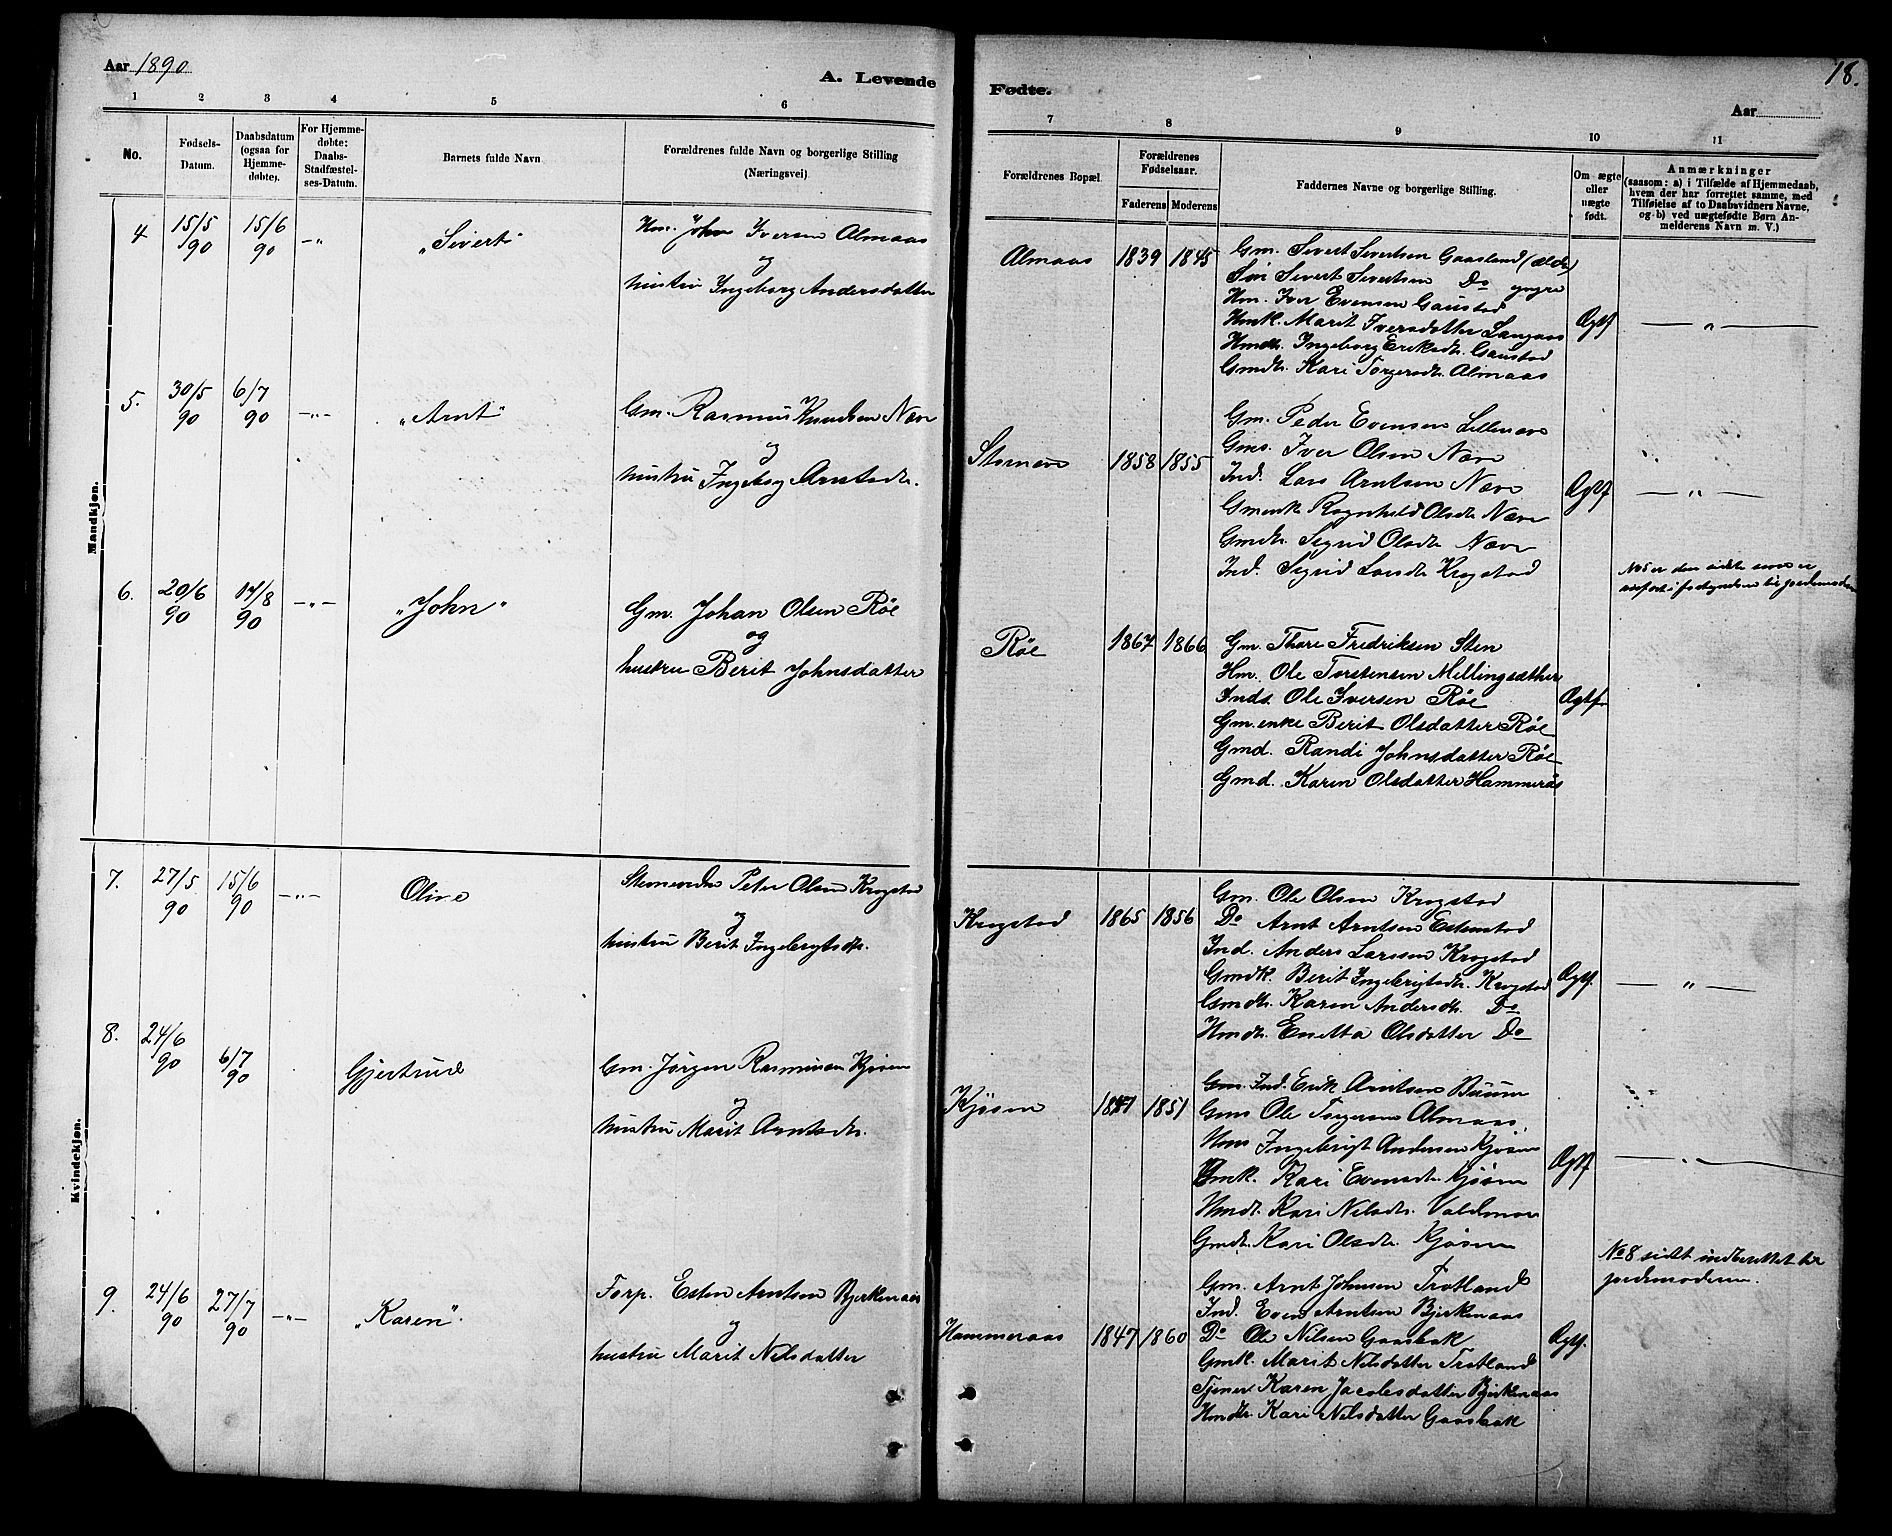 Aar 1890
A. Levende
Fødte.
18.
Aar
1 2 3 4 5 6 7 8 9 10 11
No.
Fødsels-
Datum.
Daabsdatum
(ogsaa for
Hjemme-
døbte).
For Hjemme-
døbte:
Daabs-
Stadfæstel-
ses-Datum.
Barnets fulde Navn
Forældrenes fulde Navn og borgerlige Stilling
(Næringsvei)
Forældrenes Bopæl.
Forældrenes
Fødselsaar.
Faderens Moderens
Faddernes Navne og borgerlige Stilling.
Om ægte
eller
uægte
født.
Anmærkninger
(saasom: a) i Tilfælde af Hjemmedaab,
hvem der har forrettet samme, med
Tilføielse af to Daabsvidners Navne,
og b) ved uægtefødte Børn An-
melderens Navn m. V.)
Mandkjøn.
4 15/5 90 15/6 90 -"- "Sivert"
Hm. John Iversen Almaas
og
hustru Ingeborg Andersdatter
Almaas 1839 1845
Gm. Sivert Sivertsen Gaasland (ældr)
Søn Sivert Sivertsen Do yngre
Hm. Iver Evensen Gaustad
Hmk. Marit Iversdatter Langaas
Hmdtr. Ingeborg Eriksdtr. Gaustad
Gmdtr. Kari Torgersdtr. Almaas
Ægtf — " —
5. 30/5 90 6/7 90 -"- "Arnt"
Gm. Rasmus Knudsen Næve
og
hustru Ingebog Arntsdtr.
Stornæve 1858 1855
Gm. Peder Evensen Lillenæve
Gms. Iver Olsen Næve
Ind. Lars Arntsen Næve
Gmenk Ragnhild Olsdtr Næve
Gmdtr. Sigrid Olsdtr Næve
Ind. Sigrid Larsdtr Krogstad
Ægtf — " —
No 5 er den sidste som er
anført i fortegnelsen til jordemoderen
6. 20/6 90 14/8 90 -"- "John"
Gm. Johan Olsen Røe
og
hustru Berit Johnsdatter
Røe 1867 1866
Gm. Thore Fredriksen Sten
Hm. Ole Torstensen Millingsæther
Inds. Ole Iversen Røe
Gm.enke Berit Olsdatter Røe
Gmd. Randi Johnsdatter Røe
Gmd. Karen Olsdatter Hammerås
Ægtf.
Kvindekjøn.
7. 27/5 90 15/6 90 -"- Oline
Peter Olsen Krogstad
og
hustru Berit Ingebrigtsdtr.
Krogstad 1865 1856
Gm. Ole Olsen Krogstad
Do Arnt Arntsen Estenstad
Ind. Anders Larssen Krogstad
Gmdk. Berit Ingebrigtsdtr. Krogstad
Gmdtr. Karen Andersdtr. Do
Hmdtr. Enetta Olsdatter Do
Ægtf. — " —
8. 24/6 90 6/7 90 Gjertrud
Gm. Jørgen Rasmusen Kjøsen
og
hustru Marit Arntsdtr.
Kjøsen 1851
Gm. Ind. Erik Arntsen Buum
Gms Ole Torgersen Almaas.
Hms Ingebrigt Andersen Kjøsen
Gmk. Kari Evensdtr. Kjøsen
Hmdtr. Kari Nilsdtr. Valdmoe
Gmdtr. Kari Olsdtr. Kjøsen
Ægtf — " —
No 8 sidst indberettet til
jordemoderen.
9. 24/6 90 27/7 90 -"- "Karen".
Forp. Esten Arntsen Bjerkenaas
og
hustru Marit Nilsdatter
Hammeraas 1847 1860
Gm. Arnt Johnsen Trotland
Ind. Even Arntsen Bjerkenaas
Do Ole Nilsen Gaasbak
Gmk. Marit Nilsdatter Trotland
Tjener Karen Jacobsdatter Bjerkenaas
Hmdtr. Kari Nilsdatter Gaasbak
Ægtf.